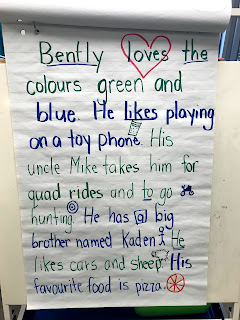 Bently loves the
colours green and
blue. He likes playing
on a toy phone. His
uncle Mike takes him for
quad rides and to go
hunting. He has a big
brother named Kaden. He
likes cars and sheep. His
favourite food is pizza.